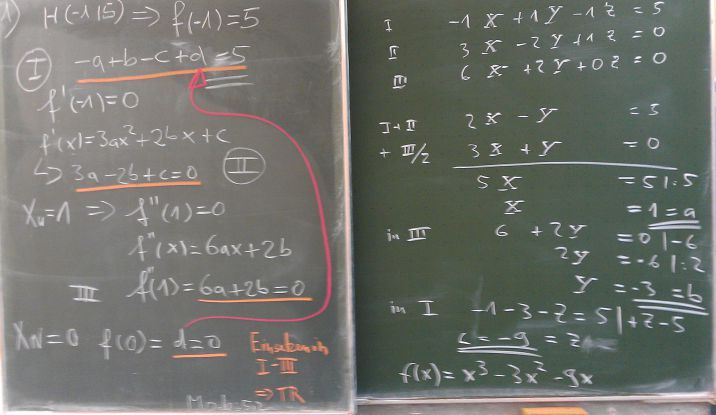 1) H(-1|5) => f(-1)=5
I -a+b-c+d=5
f'(-1)=0
f'(x)=3ax²+2bx+c
↳ 3a-2b+c=0 II
Xw=1 => f''(1)=0
f''(x)=6ax+2b
III f''(1)=6a+2b=0
XN=0 f(0)=d=0
Einsetzen in
I-III
=> TR
I -1X +1Y -1Z = 5
II 3X -2Y +1Z = 0
III 6X +2Y +0Z = 0
I+II 2X - Y = 5
+ III/2 3X + Y = 0
5X = 5 |:5
X = 1 = a
in III 6 + 2Y = 0 |-6
2Y = -6 |:2
Y = -3 = b
in I -1-3-Z = 5 |+Z-5
c = -9 = Z
f(x)=x³-3x²-9x